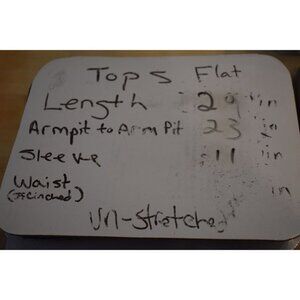 Tops Flat
Length 29 in
Armpit to Arm Pit 23 in
Sleeve 11 in
Waist in
(If Cinched)
Un-Stretched